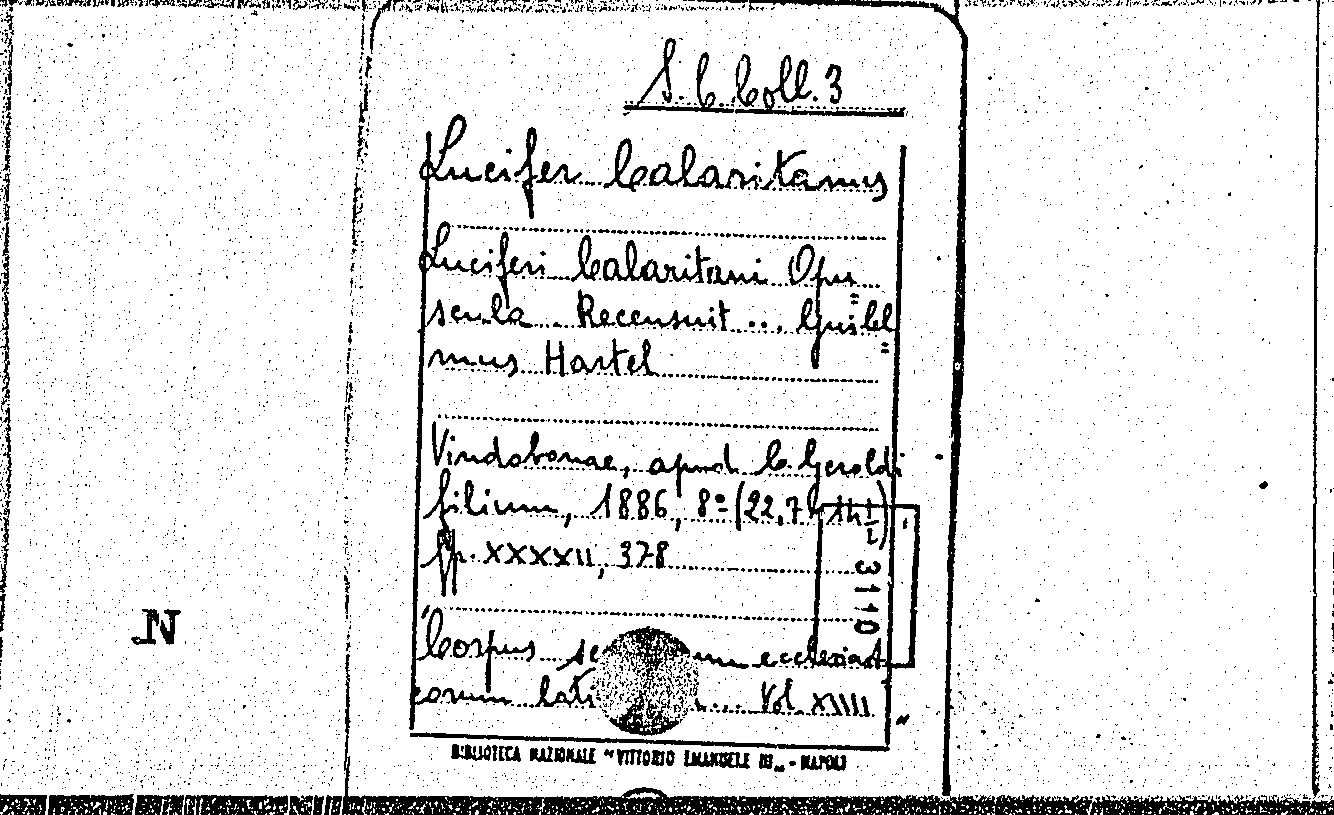 S. C. Coll. 3
Lucifer Calaritanus
Luciferi Calaritani Opu=
scula Recensuit ... Guilel=
mus Hartel
Vindobonae, apud C. Geroldi
filium, 1886, 8º (22,7 × 14½)
pp. XXXXII, 378
Corpus ecclesiasti
corum lati Vol. XIIII
3110
BIBLIOTECA NAZIONALE "VITTORIO EMANUELE III" - NAPOLI
N